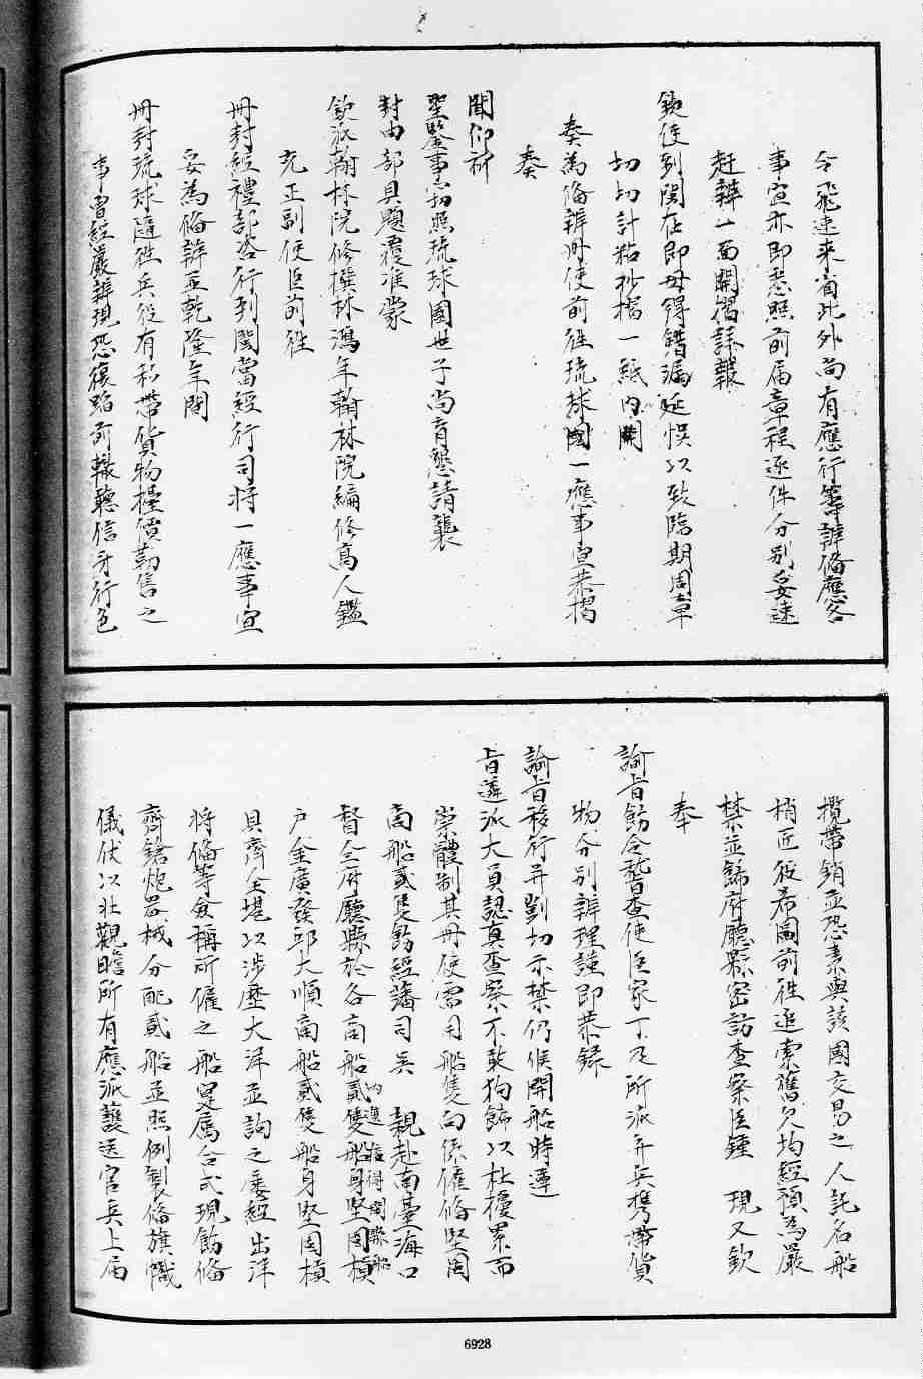 令飛速来省此外尚有應行籌辦俻應各
事宜亦即悉照前届章程逐件分別妥速
赶辦一面開摺詳報
欽使到閩在即毋得錯漏延悞以致臨期周章
切切計粘抄摺一紙内開
奏為俻辦册使前徃琉球國一應事宜恭摺
奏
聞仰祈
聖鑒事窃照琉球國世子尚育懇請襲
封由部具題覆准蒙
欽派翰林院修撰林鴻年翰林院編修高人鑑
充正副使臣前徃
冊封經禮部咨行到閩當經行司將一應事宜
妥為俻辦並乾隆年間
冊封琉球隨徃兵役有私帶貨物擡價勒售之
事曾經嚴辦現恐復蹈前轍聽信牙行包
攬帶銷並恐素與該國交易之人託名船
梢匠役希圖前徃追索舊欠均經預為嚴
禁並飭府廳縣密訪查案臣鍾 現又欽
奉
諭旨飭令稽查使臣家丁及所派弁兵携帶貨
物分別辦理謹即恭録
諭旨移行弁剴切示禁仍候開船時遵
旨遴派大員認真查察不敢狥飾以杜擾累而
崇體制其册使需用船隻向係僱俻堅固
商船貳隻飭經藩司吳 親赴南臺海口
督仝府廳縣於各商船貳隻船身堅固槓
内選擇得閩縣船
户金廣發邱大順商船貳隻船身堅固槓
具齊全堪以涉歷大洋並詢之屡經出洋
將俻等僉稱所僱之船寔属合式現飭俻
齊鎗炮器械分配貳船並照例製俻旗幟
儀仗以壯觀瞻所有應派護送官兵上届
6928